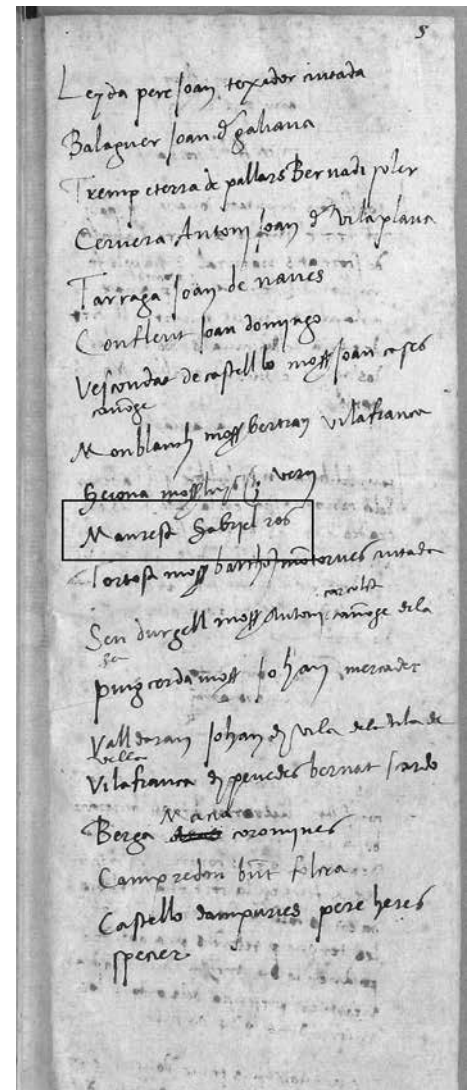 5
Leyda pere Joan texidor ciutada
Balaguer Joan d galiana
Tremp e terra de pallars Bernadi soler
Cervera Antoni Joan d Vilaplana
Tarraga Joan de naves
Conflent Joan domingo
Vescondat de castellbo moss Joan cases
canoge
Monblanch moss bertran vilafranca
moss
Manresa Gabriel ros
Tortosa moss ciutada
Seu durgell moss Antoni canoge dela
seu
puigcerda moss Johan mercader
Valldaran Johan d vila dela vila de
viella
Vilafranca d penedes bernat
Macia
Berga coromines
Campredon folcra
Castello dampuries pere heres
specier